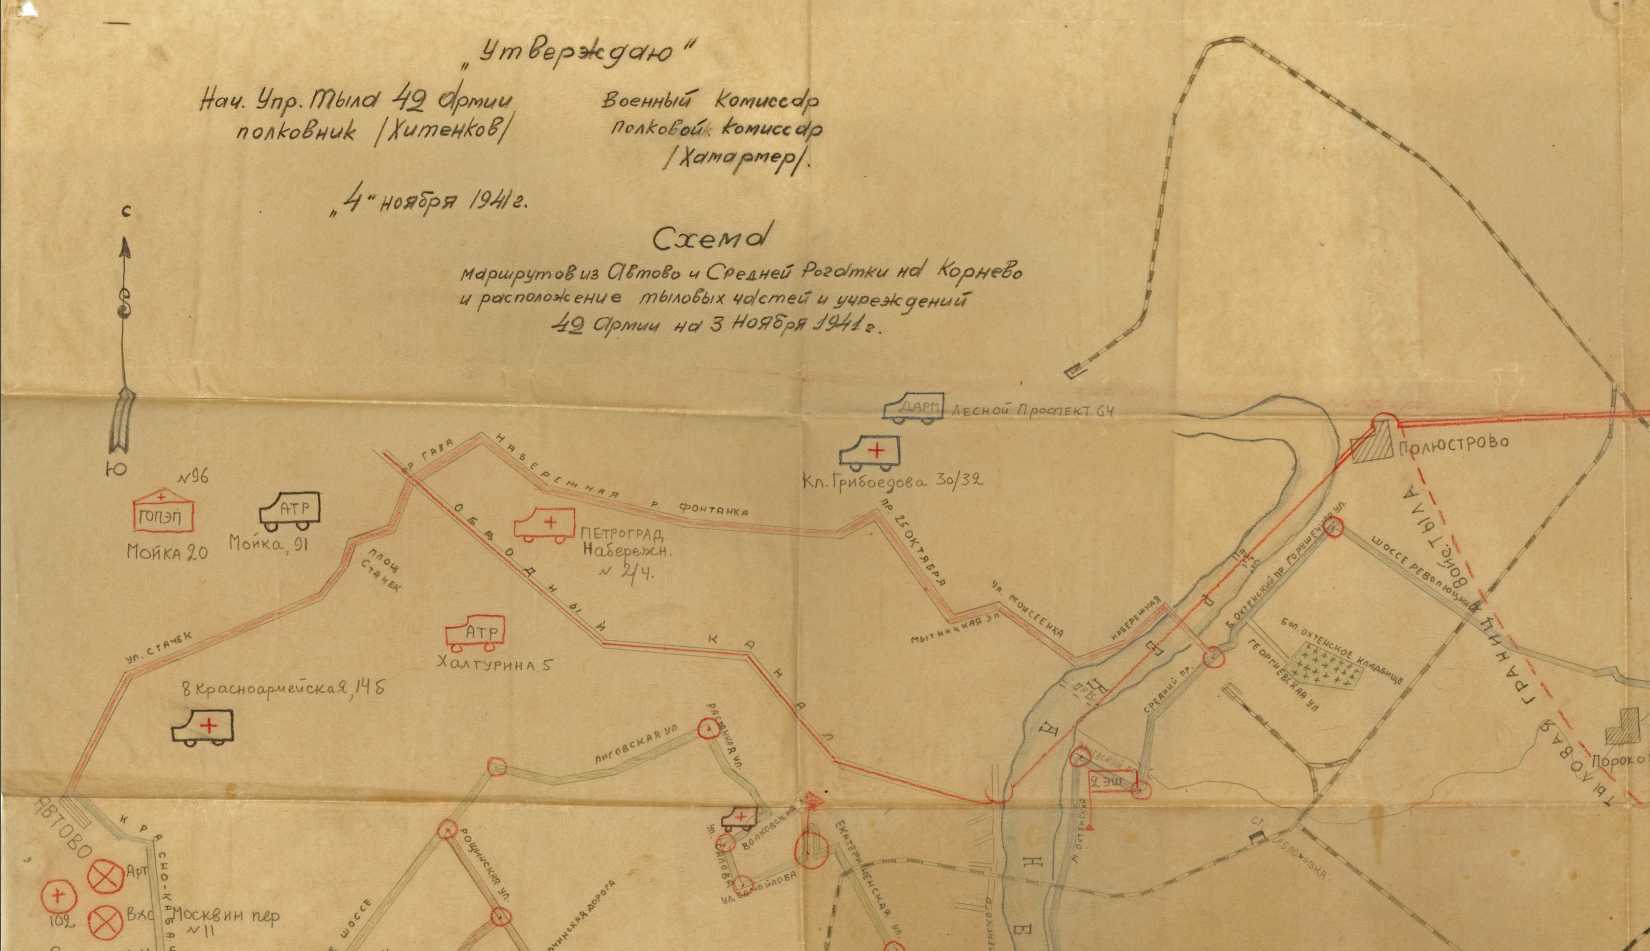 „Утверждаю"
Нач. Упр. Тыла 42 Армии
полковник /Хитенков/
Военный Комиссар
Полковой Комиссар
/Хамармер/.
„4" ноября 1941 г.
Схема
маршрутов из Автово и Средней Рогатки на Корнево
и расположение тыловых частей и учреждений
42 Армии на 3 Ноября 1941 г.
С
Ю
ДАРМ Лесной Проспект 64
Кл. Грибоедова 30/32
Полюстрово
N96
ГОПЭП
Мойка 20
АТР
Мойка, 91
Р ГАЗА
НАБЕРЕЖНАЯ Р. ФОНТАНКА
ПЕТРОГРАД
Набережн.
N 2/4.
ПР. 25 ОКТЯБРЯ
УЛ. МОИСЕЕНКА
МЫТНИНСКАЯ УЛ
НАБЕРЕЖНАЯ
ОБВОДНЫЙ КАНАЛ
ПЛОЩ
СТАЧЕК
УЛ. СТАЧЕК
АТР
Халтурина 5
8 Красноармейская, 14б
Б. ОХТЕНСКИЙ ПР.
УЛ.
ШОССЕ РЕВОЛЮЦИИ
БОЛ. ОХТЕНСКОЕ КЛАДБИЩЕ
ГЕОРГИЕВСКАЯ УЛ
СРЕДНИЙ ПР.
ТЫЛОВАЯ ГРАНИЦ ВОЙС. ТЫЛА
Порохо
ЛИГОВСКАЯ УЛ
2 ЭШ
М. ОХТЕНСКИЙ
АВТОВО
КРАСНО-КАБАЧ
РОЩИНСКАЯ УЛ.
ШОССЕ
УЛ. САМОЙЛОВА
ЕКАТЕРИНЕНСКАЯ УЛ.
Н Е В
Арт
102
Вхс
Москвин пер
N 11